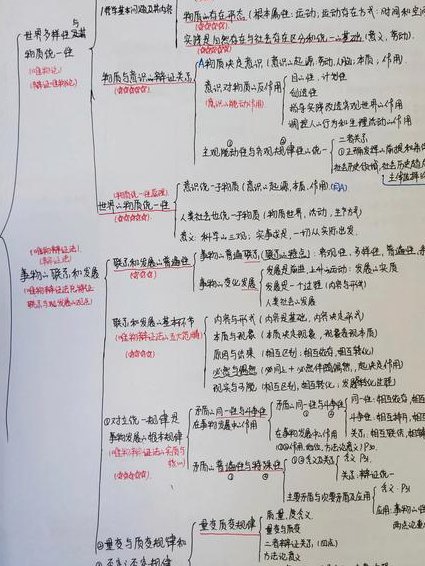 哲学基本问题及其内容
物质的存在形态（根本属性：运动，运动存在方式：时间和空间
实践是自然存在与社会存在区分和统一的基础（意义，劳动）
世界多样性与
物质统一性
（唯物论）
（辩证唯物论）
物质与意识的辩证关系
A物质决定意识（意识的起源，劳动，人脑，本质，作用）
意识对物质的反作用
（意识的能动作用）
目的性，计划性
创造性
指导实践改造客观世界的作用
调控人的行为和生理活动的作用
主观能动性与客观规律性统一
二者关系
①正确发挥的前提和条件
社会历史领域
世界的物质统一性
（物质统一原理）
意识统一于物质（意识的起源，本质，作用）（同A）
人类社会也统一于物质（物质世界，活动，生产方式）
意义：科学的三观；实事求是，一切从实际出发
事物的联系和发展
（唯物辩证法）
联系和发展的普遍性
事物的普遍联系（联系的特点）：客观性，多样性，普遍性，条
事物的变化发展
发展是前进、上升的运动；发展的实质
发展是一个过程（内容与形式）
人类社会的发展
联系和发展的基本环节
（唯物辩证法的五大范畴）
内容与形式（内容是基础，内容决定形式）
本质与现象（本质决定现象，现象表现本质）
原因与结果（相互区别；相互依存，相互转化）
必然与偶然
现实与可能（相互区别，相互转化；发展转化过程）
①对立统一规律是
事物发展的根本规律
（唯物辩证法的实质与核心）
矛盾的同一性与斗争性
在事物发展中的作用
矛盾的同一性与斗争性
同一性：相互依存，相互
斗争性：相互排斥，相互
关系：相互联结，相辅
在事物发展中作用
矛盾的普遍性与特殊性
①②含义及关系
含义：P31
关系：辩证统一
主要矛盾与次要矛盾及应用
含义：P31
应用：事物的性
两点论重
②量变与质变规律和
量变质变规律
质，量，度含义
量变与质变
二者辩证关系（四点）
方法论意义